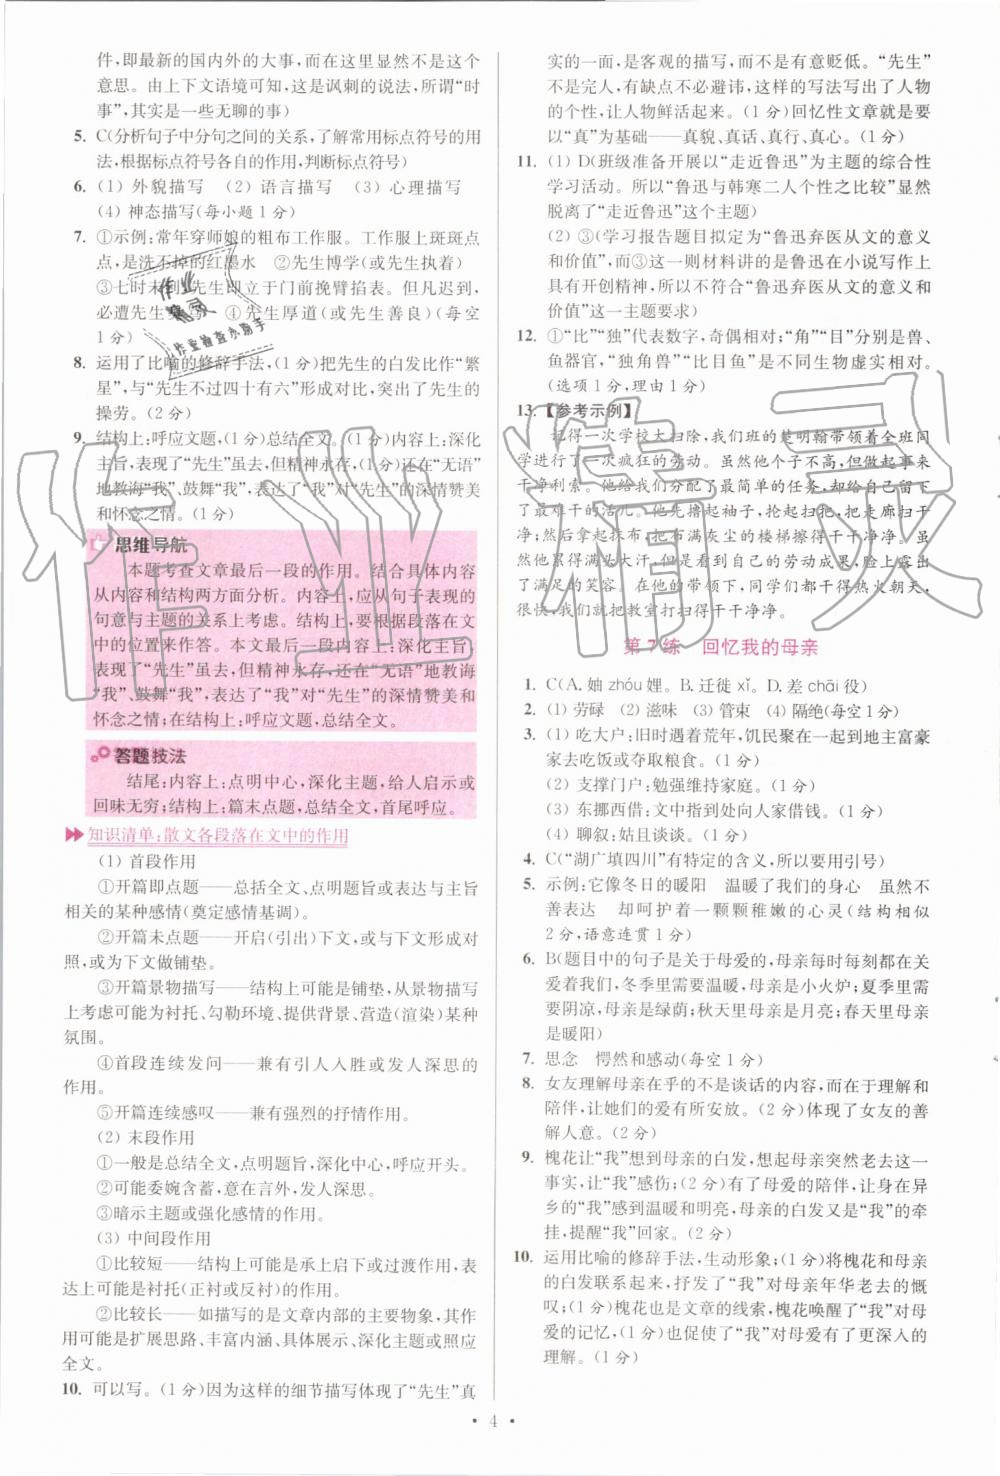 件,即最新的国内外的大事,而在这里显然不是这个
意思。由上下文语境可知,这是讽刺的说法,所谓“时
事”,其实是一些无聊的事)
5. C(分析句子中分句之间的关系,了解常用标点符号的用
法,根据标点符号各自的作用,判断标点符号)
6. (1) 外貌描写 (2) 语言描写 (3) 心理描写
(4) 神态描写(每小题1分)
7. ①示例:常年穿师娘的粗布工作服。工作服上斑斑点
点,是洗不掉的红墨水 ②先生博学(或先生执着)
③七时未到,先生即立于门前挽臂掐表。凡迟到者,
必遭先生 ④先生善良(或先生善良)(每空
1分)
8. 运用了比喻的修辞手法,(1分)把先生的白发比作“繁
星”,与“先生不过四十有六”形成对比,突出了先生的
操劳。(2分)
9. 结构上:呼应文题,(1分)总结全文。(1分)内容上:深化
主旨,表现了“先生”虽去,但精神永存,(1分)还在“无语”
地教诲“我”、鼓舞“我”,表达了“我”对“先生”的深情赞美
和怀念之情。(1分)
思维导航
本题考查文章最后一段的作用。结合具体内容
从内容和结构两方面分析。内容上,应从句子表现的
句意与主题的关系上考虑。结构上,要根据段落在文
中的位置来作答。本文最后一段内容上:深化主旨,
表现了“先生”虽去,但精神永存,还在“无语”地教诲
“我”、鼓舞“我”,表达了“我”对“先生”的深情赞美和
怀念之情;在结构上:呼应文题,总结全文。
答题技法
结尾:内容上:点明中心,深化主题,给人启示或
回味无穷;结构上:篇末点题,总结全文,首尾呼应。
知识清单:散文各段落在文中的作用
(1) 首段作用
①开篇即点题——总括全文、点明题旨或表达与主旨
相关的某种感情(奠定感情基调)。
②开篇未点题——开启(引出)下文,或与下文形成对
照,或为下文做铺垫。
③开篇景物描写——结构上可能是铺垫,从景物描写
上考虑可能为衬托、勾勒环境、提供背景、营造(渲染)某种
氛围。
④首段连续发问——兼有引人入胜或发人深思的
作用。
⑤开篇连续感叹——兼有强烈的抒情作用。
(2) 末段作用
①一般是总结全文,点明题旨,深化中心,呼应开头。
②可能委婉含蓄,意在言外,发人深思。
③暗示主题或强化感情的作用。
(3) 中间段作用
①比较短——结构上可能是承上启下或过渡过桥,表
达上可能是衬托(正衬或反衬)的作用。
②比较长——如描写的是文章内部的主要物象,其作
用可能是扩展思路、丰富内涵、具体展示、深化主题或照应
全文。
10. 可以写。(1分)因为这样的细节描写体现了“先生”真
实的一面,是客观的描写,而不是有意贬低。“先生”
不是完人,有缺点不必避讳,这样的写法写出了人物
的个性,让人物鲜活起来。(1分)回忆性文章就是要
以“真”为基础——真貌、真话、真行、真心。(1分)
11. (1) D(班级准备开展以“走近鲁迅”为主题的综合性
学习活动。所以“鲁迅与韩寒二人个性之比较”显然
脱离了“走近鲁迅”这个主题)
(2) ③(学习报告题目拟定为“鲁迅弃医从文的意义
和价值”,而③这一则材料讲的是鲁迅在小说写作上
具有开创精神,所以不符合“鲁迅弃医从文的意义和
价值”这一主题要求)
12. ①“比”“独”代表数字,奇偶相对;“角”“目”分别是兽、
鱼器官,“独角兽”“比目鱼”是不同生物虚实相对。
(选项1分,理由1分)
13. 【参考示例】
记得一次学校大扫除,我们班的楚明翰带领着全班同
学进行了一次疯狂的劳动。虽然他个子不高,但做起事来
干净利索。他给我们分配了最简单的任务,却给自己留下
了最难干的活儿。他先撸起袖子,抡起扫把,把走廊扫干
净;然后拿起抹布,把布满灰尘的楼梯擦得干干净净。虽
然他累得满头大汗,但看到自己的劳动成果,脸上露出
了满足的笑容。在他的带领下,同学们都干得热火朝天,
很快,我们就把教室打扫得干干净净。
第7练 回忆我的母亲
1. C(A. 妯 zhóu 娌。B. 迁徙 xǐ。D. 差 chāi 役)
2. (1) 劳碌 (2) 滋味 (3) 管束 (4) 隔绝(每空1分)
3. (1) 吃大户:旧时遇着荒年,饥民聚在一起到地主富豪
家去吃饭或夺取粮食。(1分)
(2) 支撑门户:勉强维持家庭。(1分)
(3) 东挪西借:文中指到处向人家借钱。(1分)
(4) 聊叙:姑且谈谈。(1分)
4. C(“湖广填四川”有特定的含义,所以要用引号)
5. 示例:它像冬日的暖阳 温暖了我们的身心 虽然不
善表达 却呵护着一颗颗稚嫩的心灵(结构相似
2分,语意连贯1分)
6. B(题目中的句子是关于母爱的,母亲每时每刻都在关
爱着我们;冬季里需要温暖,母亲是小火炉;夏季里需
要阴凉,母亲是绿荫;秋天里母亲是月亮;春天里母亲
是暖阳)
7. 思念 愕然和感动(每空1分)
8. 女友理解母亲在乎的不是谈话的内容,而在于理解和
陪伴,让她们的爱有所安放。(2分)体现了女友的善
解人意。(2分)
9. 槐花让“我”想到母亲的白发,想起母亲突然老去这一
事实,让“我”感伤;(2分)有了母爱的陪伴,让身在异
乡的“我”情感和明亮,母亲的白发又是“我”的牵
挂,提醒“我”回家。(2分)
10. 运用比喻的修辞手法,生动形象;(1分)将槐花和母亲
的白发联系起来,抒发了“我”对母亲年华老去的慨
叹;(1分)槐花也是文章的线索,槐花唤醒了“我”对母
爱的记忆,(1分)也促使了“我”对母爱有了更深入的
理解。(1分)
• 4 •